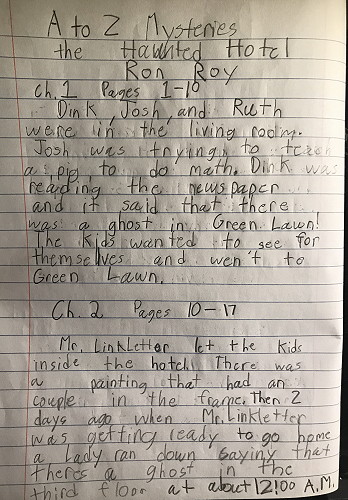 A to Z Mysteries
the Haunted Hotel
Ron Roy
Ch. 1 Pages 1-10
Dink, Josh, and Ruth
were in the living room.
Josh was trying to teach
a pig to do math. Dink was
reading the newspaper
and it said that there
was a ghost in Green Lawn!
The kids wanted to see for
themselves and wen't to
Green Lawn.
Ch. 2 Pages 10-17
Mr. Linkletter let the kids
inside the hotel. There was
a painting that had an
couple in the frame. Then 2
days ago when Mr. Linkletter
was getting ready to go home
a Lady ran down sayiny that
theres a ghost in the
third floor at about 12:00 A.M.